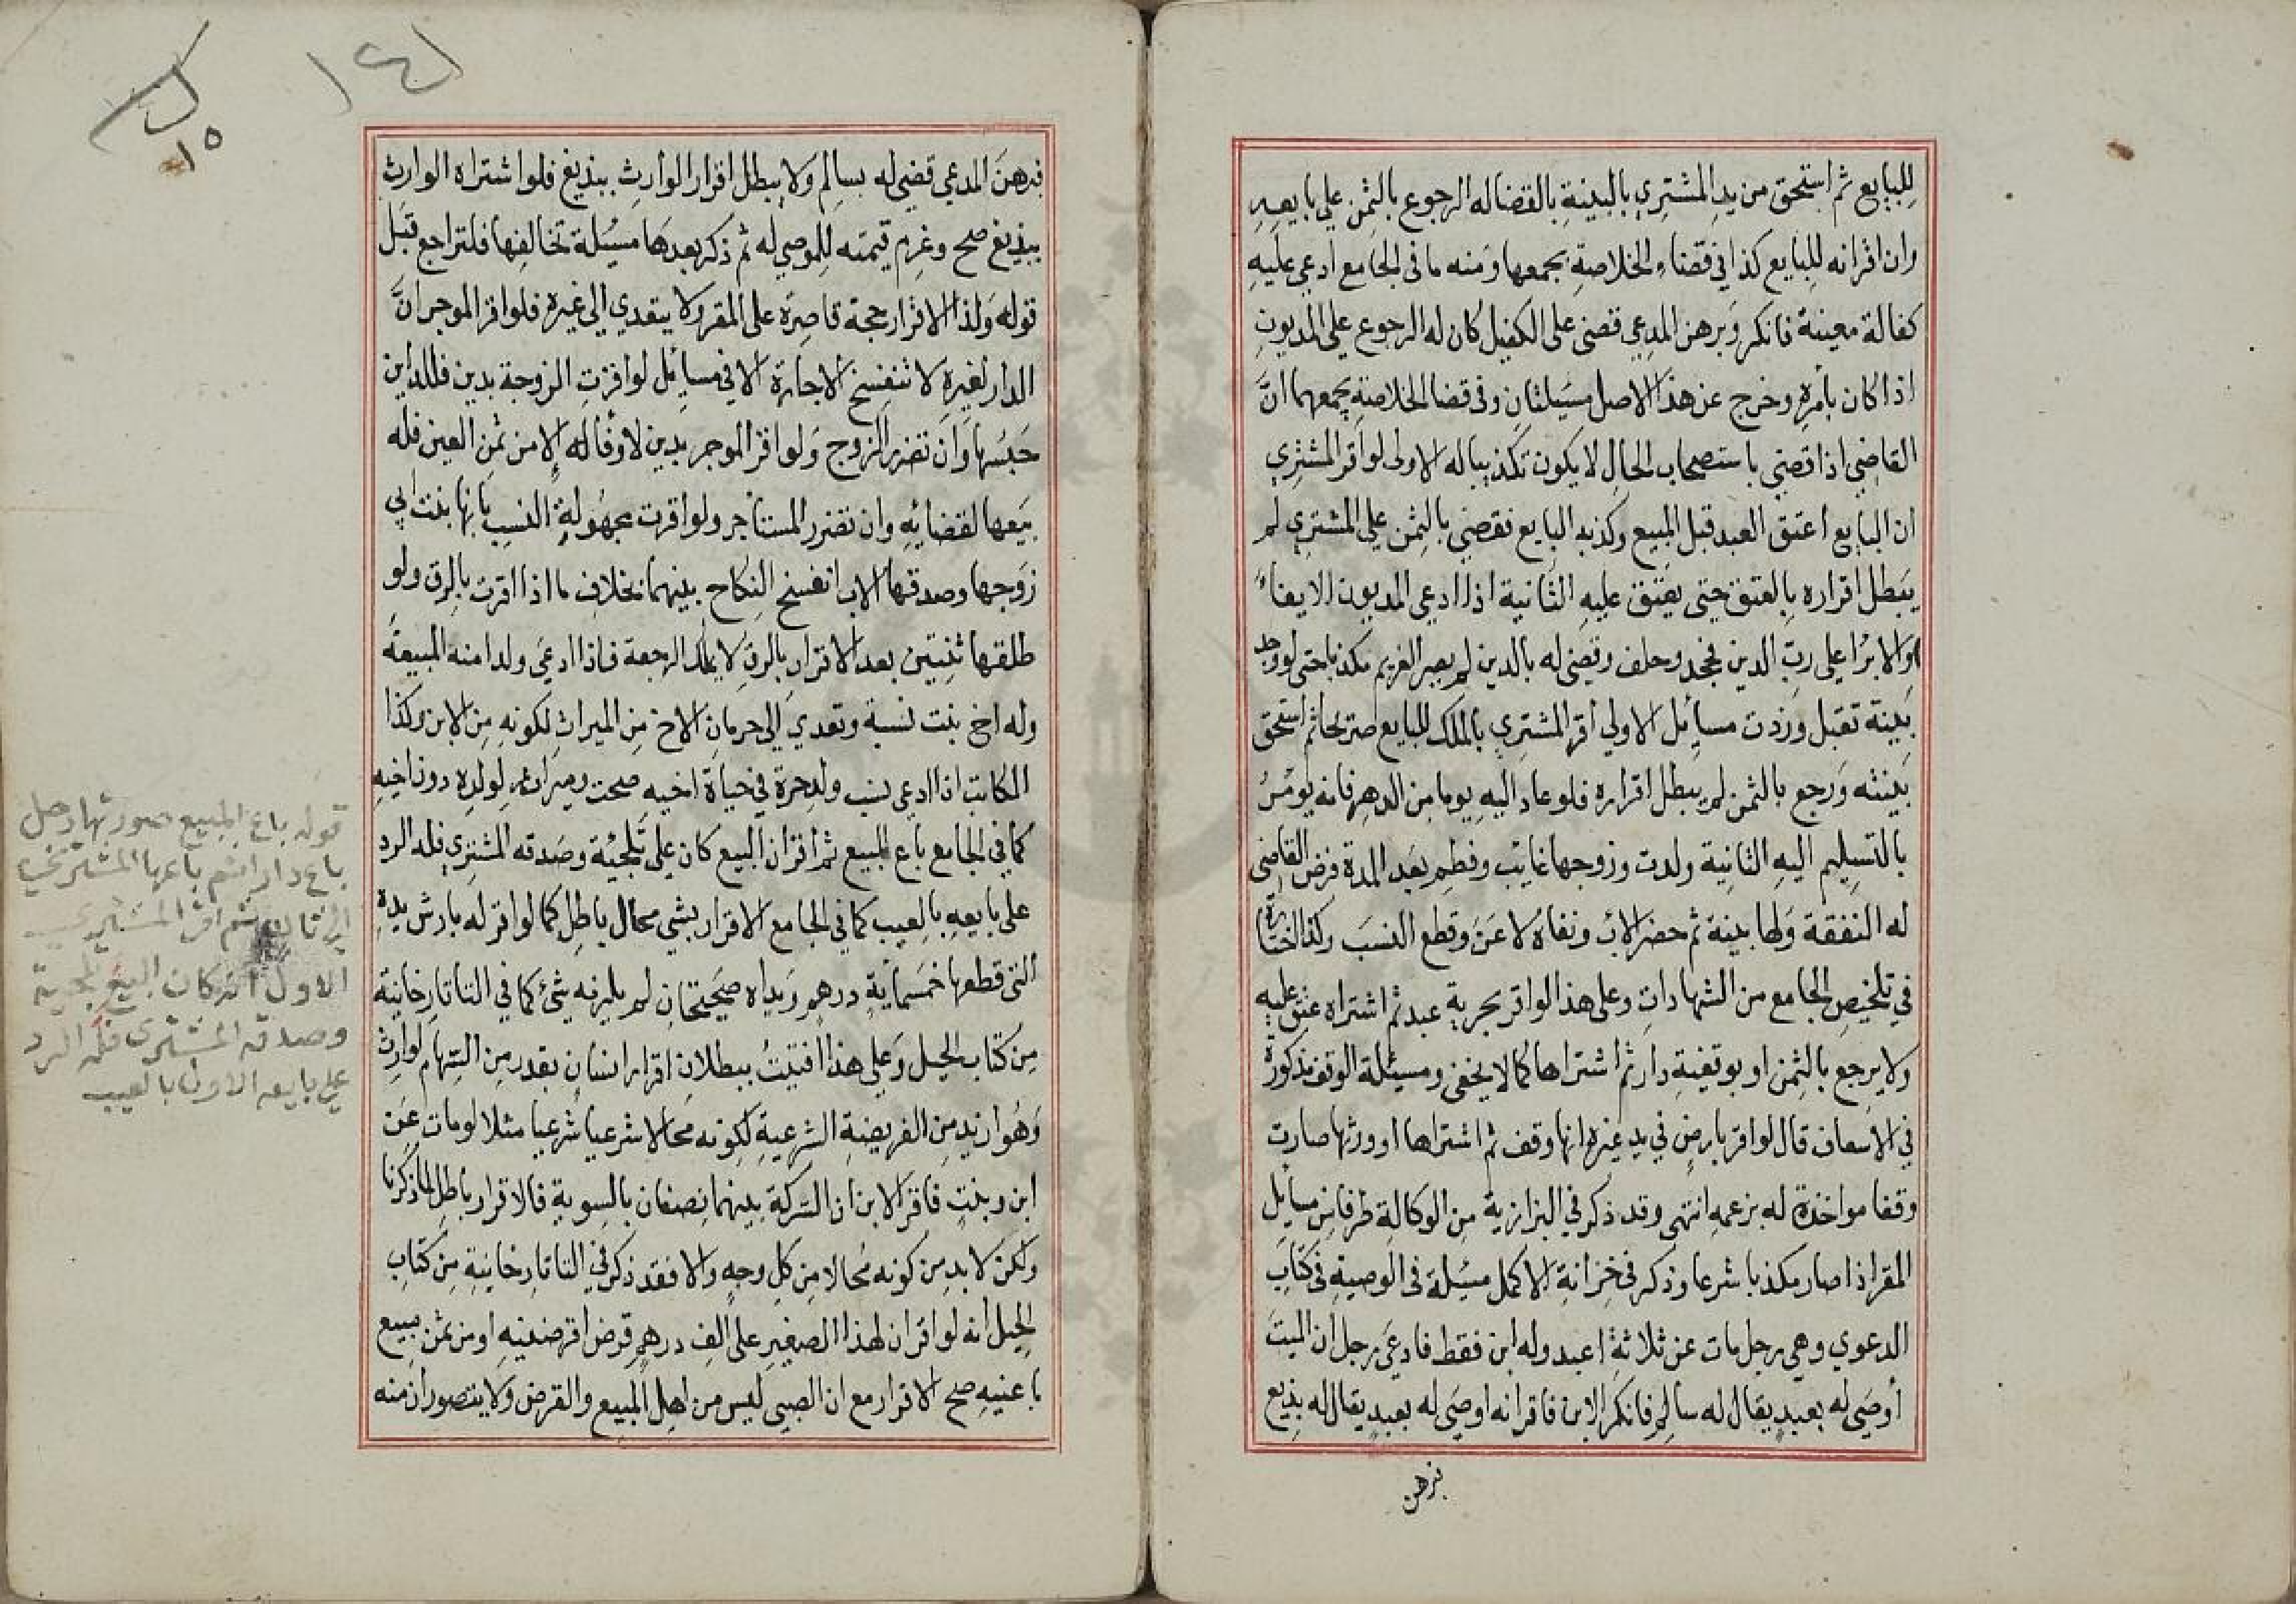 للبايع ثم استحق من يد المشتري بالبينة بالقضا له الرجوع بالثمن علي بايعه
وان اقر انه للبايع كذا في قضاء الخلاصة بجمعها ومنه ما في الجامع ادعي عليه
كفالة معينة فانكر وبرهن المدعي قضي على الكفيل كان له الرجوع علي المديون
اذا كان بأمره وخرج عن هذا الاصل مسيلتان وفي قضا الخلاصة يجمعهما ان
القاضي اذا قضي باستصحاب الحال لا يكون تكذيبا له الاولى لو اقر المشتري
ان البايع اعتق العبد قبل المبيع وكذبه البايع فقضي بالثمن علي المشتري لم
يبطل اقراره بالعتق حتي يعتق عليه الثانية اذا ادعي المديون الايفاء
والابرا على رب الدين فجحد وحلف وقضي له بالدين لم يصر الغريم مكذبا حتى لو وجد
بينة تقبل وزدت مسايل الاولي اقر المشتري بالملك للبايع صريحا ثم استحق
ببينته ورجع بالثمن لم يبطل اقراره فلو عاد اليه يوما من الدهر فانه يومر
بالتسليم اليه الثانية ولدت وزوجها غايب وفطم بعد المدة فرض القاضي
له النفقة ولها بينة ثم حضر الاب ونفاه لاعن وقطع النسب وكذا اختارة
في تلخيص الجامع من الشهادات وعلى هذا لو اقر بحرية عبد ثم اشتراه عتق عليه
ولا يرجع بالثمن او بوقفية دار ثم اشتراها كما لا يخفى ومسيئلة الوقف مذكورة
في الاسعاف قال لو اقر بارض في يد غيره انها وقف ثم اشتراها او ورثها صارت
وقفا مواخذة له بزعمه انتهى وقد ذكر في البزازية من الوكالة طرفا من مسايل
المقر اذا صار مكذبا شرعا وذكر في خزانة الاكمل مسئلة في الوصية في كتاب
الدعوي وهي رجل مات عن ثلاثة اعبد وله ابن فقط فادعى رجل ان الميت
أوصى له بعبد يقال له سالم فانكر الابن فاقر انه اوصى له بعبد يقال له بذيع
برهن
١٤١
١٥
فبرهن المدعي قضي له بسالم ولا يبطل اقرار الوارث ببذيغ فلو اشتراه الوارث
ببذيغ صح وغرم قيمته للموصي له ثم ذكر بعدها مسئلة تخالفها فلتراجع قبل
قوله ولذا الاقرار حجة قاصرة على المقر ولا يتعدي الى غيره فلو اقر الموجر ان
الدار لغيره لا تنفسخ الاجارة الا في مسايل لو اقرت الزوجة بدين فللداين
حبسها وان تضرر الزوج ولو اقر الموجر بدين لا وفا له إلا من ثمن العين فله
بيعها لقضايه وان تضرر المستاجر ولو اقرت مجهولة النسب بانها بنت ابي
زوجها وصدقها الاب انفسخ النكاح بينهما بخلاف ما اذا اقرت بالرق ولو
طلقها ثنتين بعد الاقرار بالرق لا يملك الرجعة فاذا ادعى ولد امته المبيعة
وله اخ بنت نسبة وتعدي الى حرمان الاخ من الميراث لكونه من الابن وكذا
المكاتب اذا ادعى نسب ولد حرة في حياة اخيه صحت وميراثه لولده دون اخيه
كما في الجامع باع المبيع ثم اقر ان البيع كان علي تلجيئة وصدقه المشتري فله الرد
على بايعه بالعيب كما في الجامع الاقرار بشي محال باطل كما لو اقر له بارش يده
التي قطعها خمسماية درهم ويداه صحيحتان لم يلزمه شئ كما في التاتارخانية
من كتاب الحيل وعلى هذا افتيت ببطلان اقرار انسان بقدر من السهام لوارث
وهو ازيد من الفريضة الشرعية لكونه محالا شرعيا شرعيا مثلا لو مات عن
ابن وبنت فاقر الابن ان التركة بينهما نصفان بالسوية فالاقرار باطل لما ذكرنا
ولكن لا بد من كونه محالا من كل وجه والا فقد ذكر في التاتارخانية من كتاب
الحيل انه لو اقر ان لهذا الصغير علي الف درهم قرض اقرضنيه او من ثمن مبيع
باعنيه صح الاقرار مع ان الصبي ليس من اهل المبيع والقرض ولا يتصور ان منه
قوله باع المبيع صورتها رجل
باع دارا ثم باعها المشتري
الي ثالث ثم اقر المشتري
الاول ان كان البيع
وصدقه المشتري فله الرد
علي بايعه الاول بالعيب